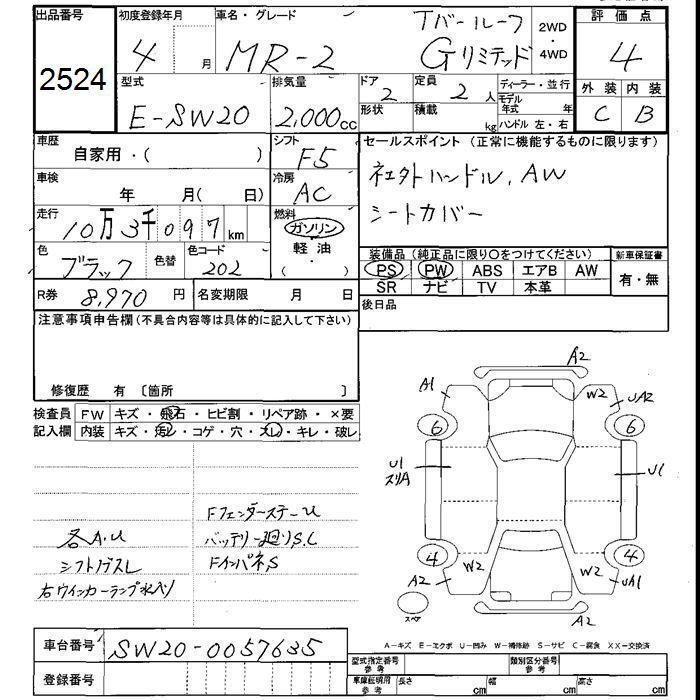 出品番号
2524
初度登録年月
4 月
車名・グレード
MR-2
Tバールーフ
Gリミテッド
2WD
・
4WD
評価点
4
型式
E-SW20
排気量
2,000cc
ドア
2
形状
定員
2 人
積載
kg
ディーラー・並行
モデル
年式 年
ハンドル 左・右
外装 内装
C B
車歴
自家用・( )
シフト
F5
セールスポイント (正常に機能するものに限ります)
車検
年 月( 日)
冷房
AC
ハンドル、AW
シートカバー
走行
10万3千097km
燃料
ガソリン
軽油
( ・ )
色
ブラック
色替
色コード
202
装備品 (純正品に限り○をつけてください)
新車保証書
PS PW ABS エアB AW
SR ナビ TV 本革
有・無
R券
8,970 円
名変期限 月 日
後日品
注意事項申告欄(不具合内容等は具体的に記入して下さい)
修復歴 有 〔箇所 〕
検査員
記入欄
FW キズ・飛石・ヒビ割・リペア跡・×要
内装 キズ・汚レ・コゲ・穴・スレ・キレ・破レ
各A.U
シフトノブスレ
右ウインカーランプ水入り
Fフェンダーステー U
バッテリー廻りS.C
FインパネS
A2
A1
W2
UA2
6
6
U1
スリA
U1
4
4
A2
W2
W2
UA1
A2
スペア
A-キズ E-エクボ U-凹み W-補修跡 S-サビ C-腐食 XX-交換済
車台番号
SW20-0057635
登録番号
型式指定番号
参考
類別区分番号
参考
車庫証明用
参考
長さ cm
幅 cm
高さ cm